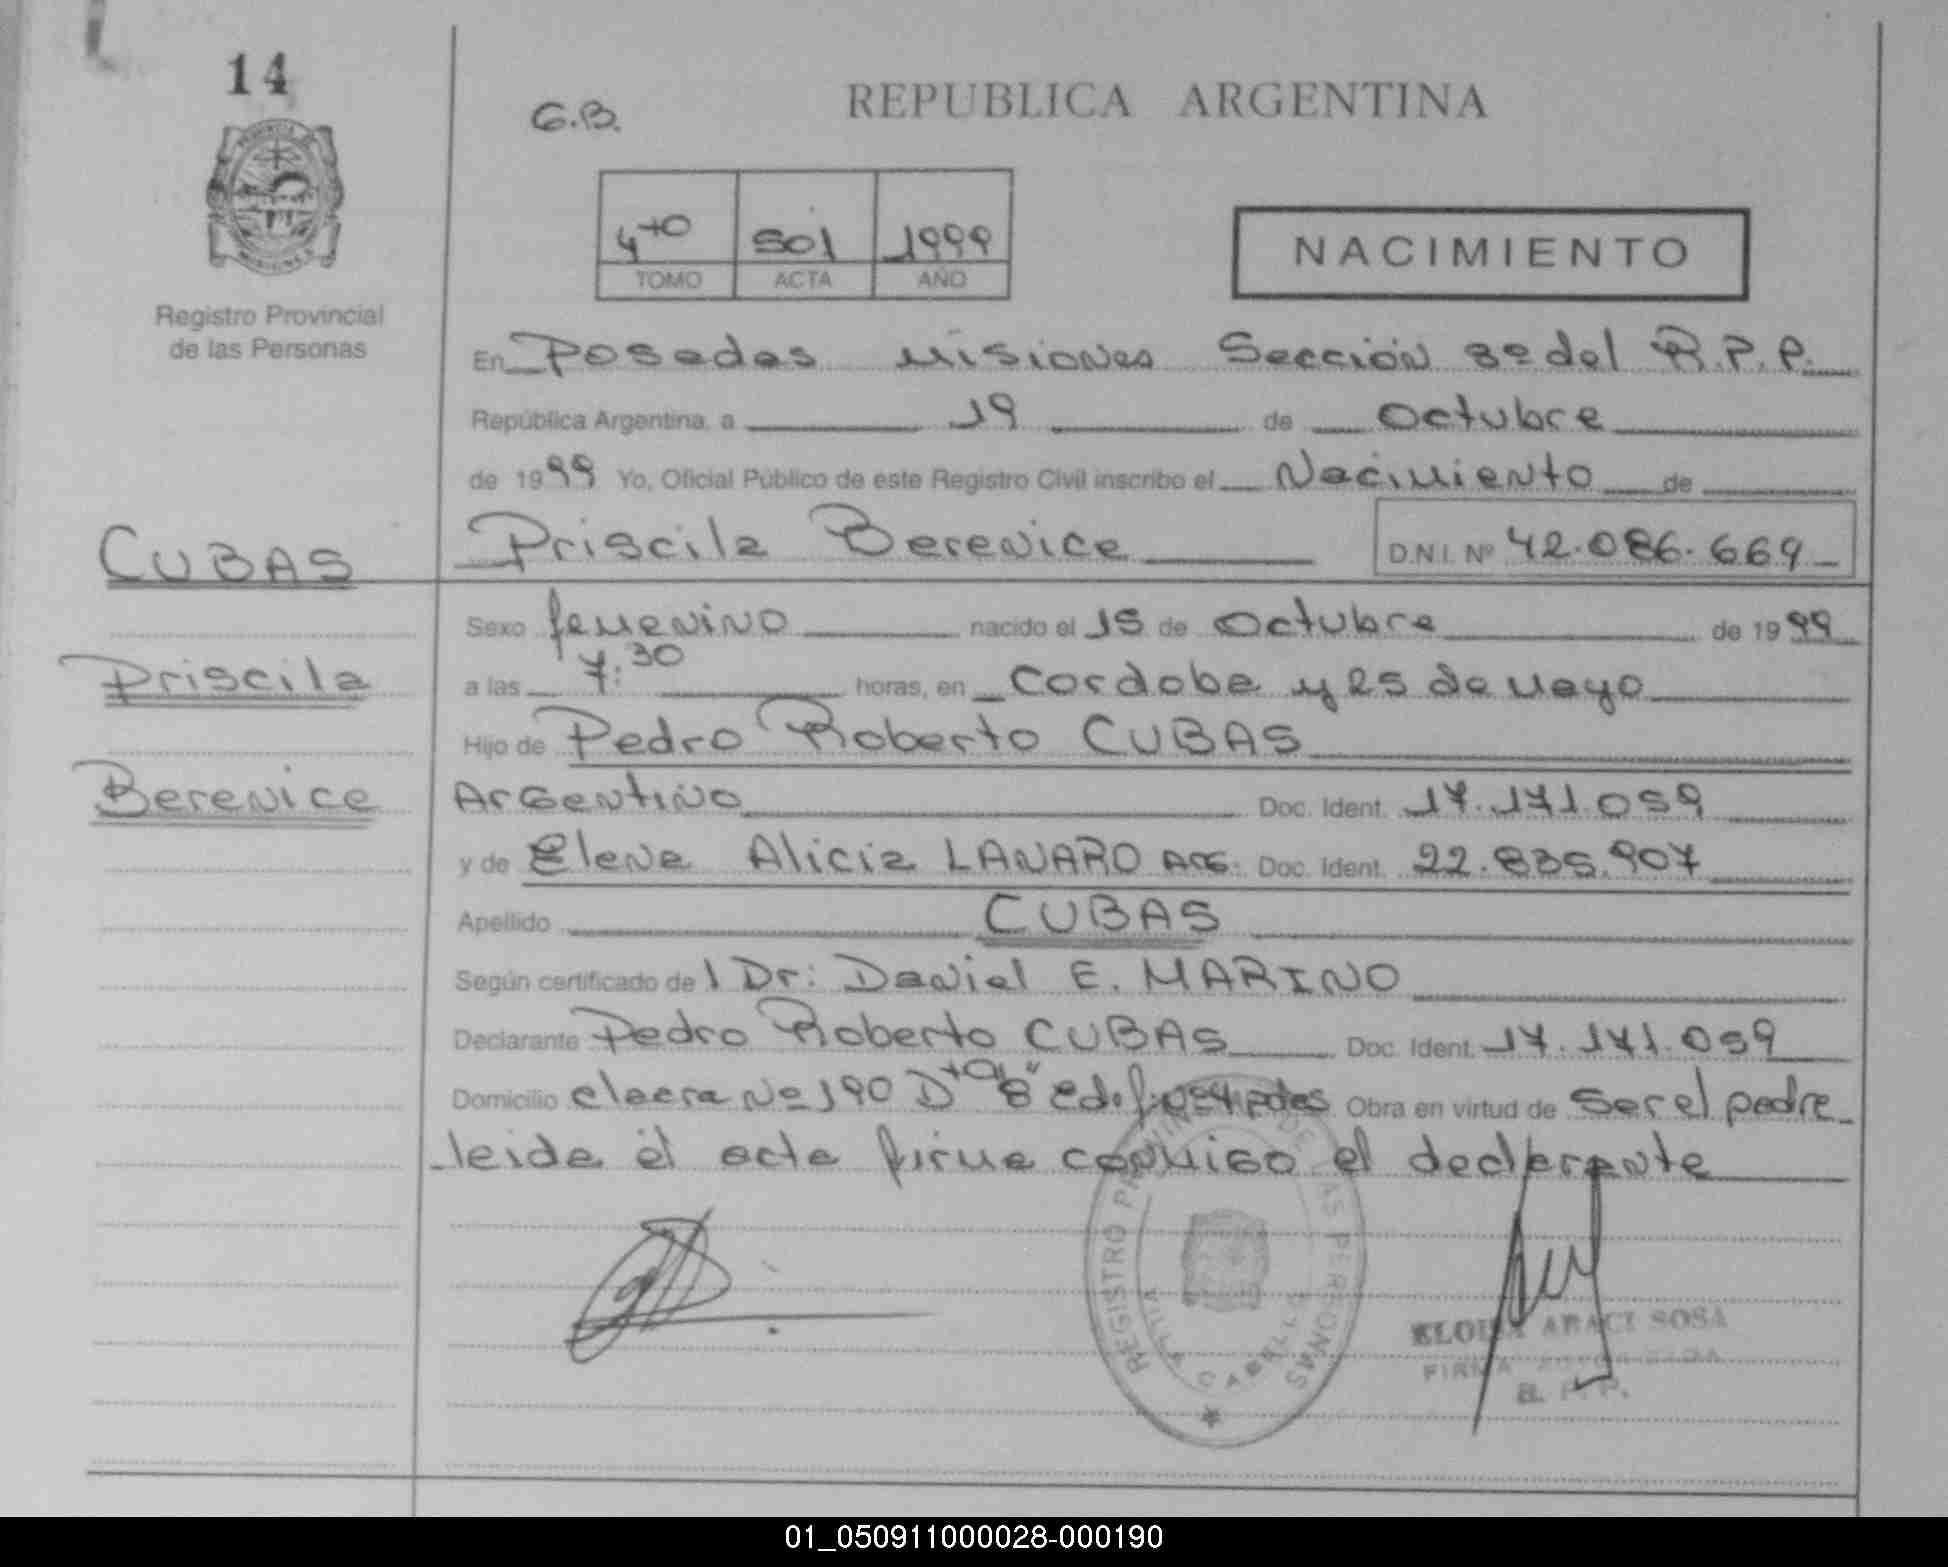 14
G.B.
REPUBLICA ARGENTINA
4to 501 1999
TOMO ACTA AÑO
NACIMIENTO
Registro Provincial
de las Personas
En Posadas Misiones Sección 3º del R.P.P.
República Argentina, a 19 de Octubre
de 1999 Yo, Oficial Público de este Registro Civil inscribo el Nacimiento de
CUBAS
Priscila Berenice D.N.I. Nº 42.086.669
Sexo femenino nacido el 15 de Octubre de 1999
Priscila
a las 7:30 horas, en Cordoba y 25 de Mayo
Hijo de Pedro Roberto CUBAS
Berenice
Argentino Doc. Ident. 17.171.059
y de Elena Alicia LANARO ARG. Doc. Ident. 22.835.907
Apellido CUBAS
Según certificado de l Dr: Daniel E. MARINO
Declarante Pedro Roberto CUBAS Doc. Ident. 17.171.059
Domicilio chacra Nº 190 Dto "8" Obra en virtud de Ser el padre
leida el acta firma conmigo el declarante
REGISTRO PROVINCIAL DE LAS PERSONAS
ELOISA ARACI SOSA
FIRMA AUTORIZADA
R.P.P.
01_050911000028-000190